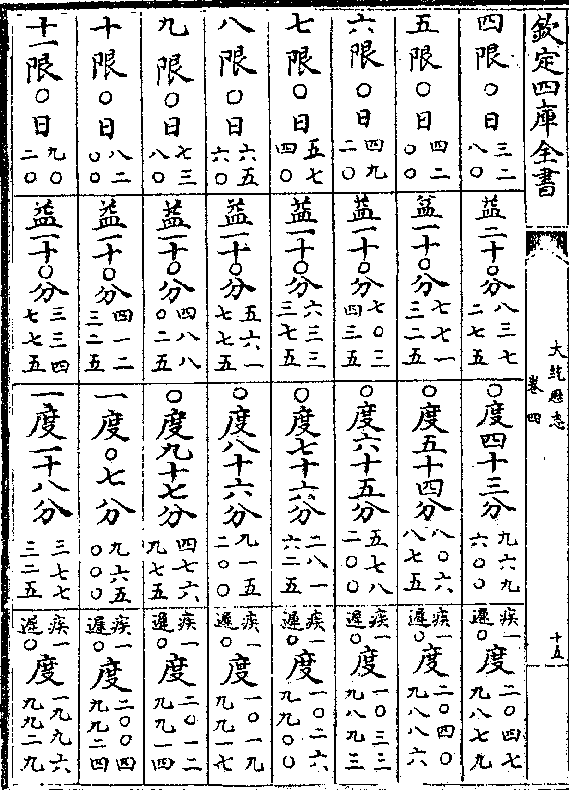 欽定四庫全書
大統厯志
卷四
十五
四限〇日三二八〇 益二十〇分八三七二七五 〇度四十三分九六九六〇〇 疾一遲〇度二〇四七九八七九
五限〇日四二〇〇 益一十〇分七七一三二五 〇度五十四分八〇六八七五 疾一遲〇度二〇四〇九八八六
六限〇日四九二〇 益一十〇分七〇三四三五 〇度六十五分五七八二〇〇 疾一遲〇度一〇三三九八九三
七限〇日五七四〇 益一十〇分六三三三七五 〇度七十六分二八一六二五 疾一遲〇度一〇二六九九〇〇
八限〇日六五六〇 益一十〇分五六一七七五 〇度八十六分九一五二〇〇 疾一遲〇度一〇一九九九一七
九限〇日七三八〇 益一十〇分四八八〇二五 〇度九十七分四七六九七五 疾一遲〇度二〇一二九九一四
十限〇日八二〇〇 益一十〇分四一二三二五 一度〇七分九六五〇〇〇 疾一遲〇度二〇〇四九九二四
十一限〇日九〇二〇 益一十〇分三三四七七五 一度一十八分三七七三二五 疾一遲〇度一九九六九九二九